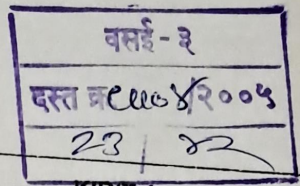 वसई - ३
दस्त क्र ८७०४/२००५
23 / ४२